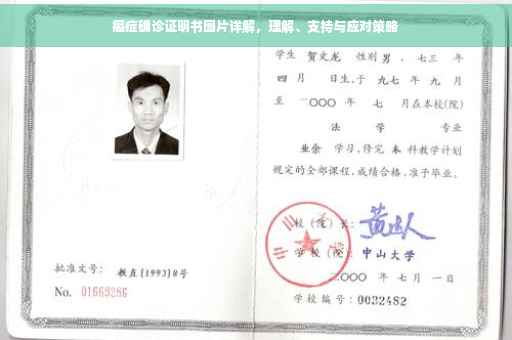 癌症确诊证明书图片详解，理解、支持与应对策略
学生 贺文龙 性别 男 、七三 年
四 月 日生，于 九七 年 九 月
至 二〇〇〇 年 七 月在本校(院)
法 学 专业
业余 学习，修完 本 科教学计划
规定的全部课程，成绩合格，准予毕业。
校(院)长：
学校(院) 中山大学
二〇〇〇 年 七 月 一 日
学校编号：0032482
批准文号： 教直[1993]8号
No. 01669286